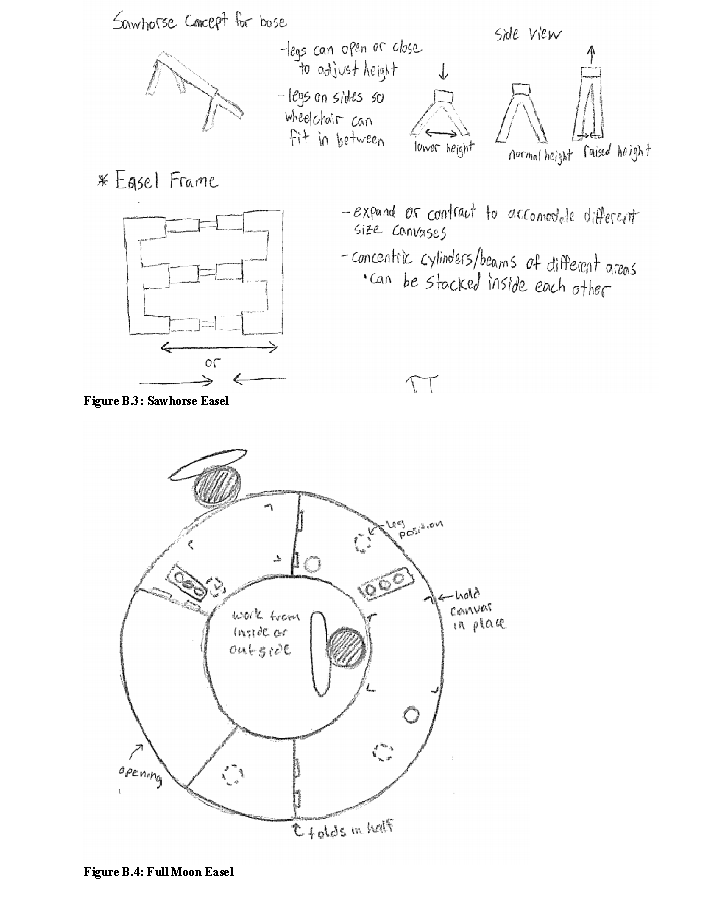 Sawhorse Concept for base
-legs can open or close
to adjust height
-legs on sides so
wheelchair can
fit in between
Side View
lower height
normal height
raised height
* Easel Frame
-expand or contract to accomodate different
size canvases
-concentric cylinders/beams of different areas
•can be stacked inside each other
or
Figure B.3: Sawhorse Easel
leg
position
hold
canvas
in place
work from
inside or
outside
opening
folds in half
Figure B.4: Full Moon Easel